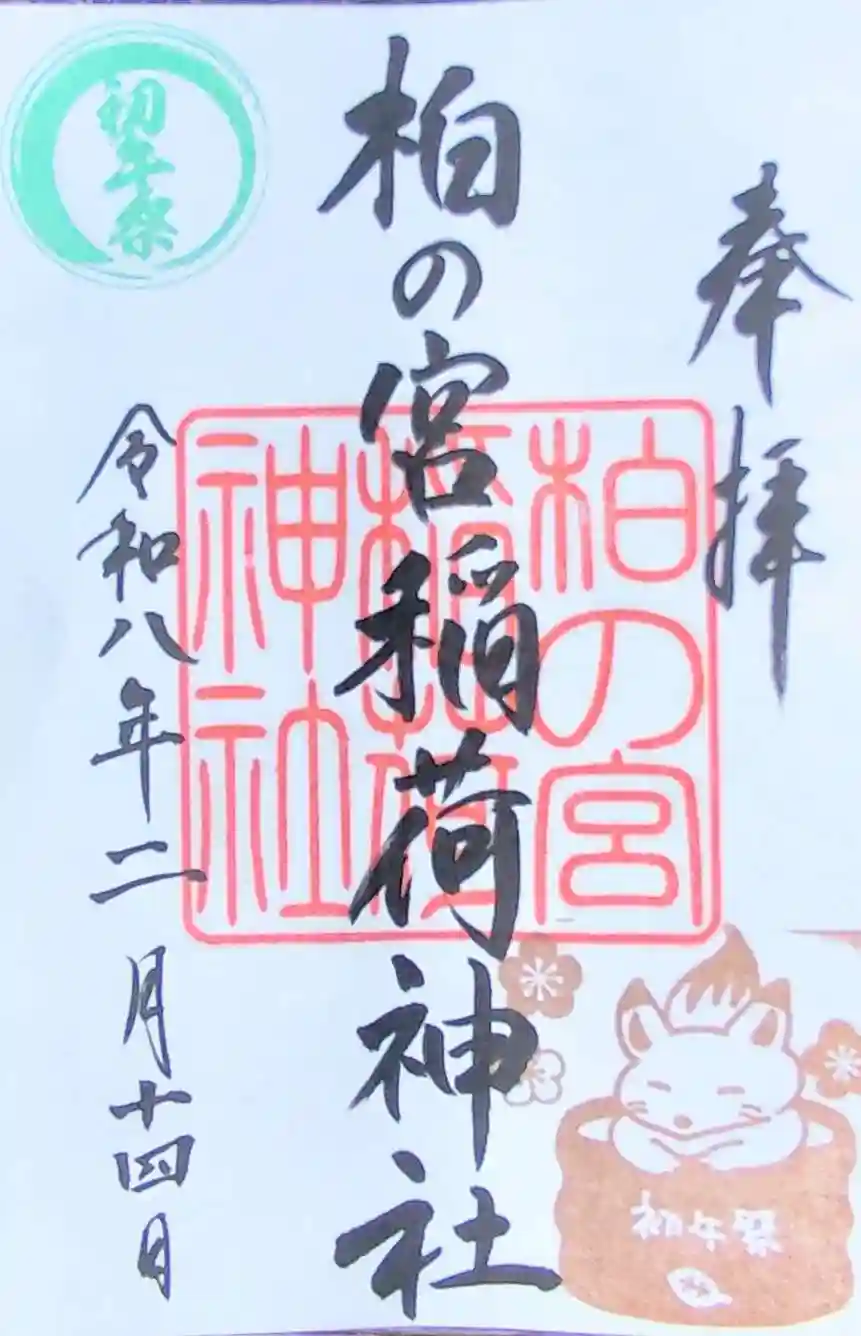 奉拝
柏の宮稲荷神社
柏の宮
稲荷
神社
令和八年二月十四日
初午祭
初午祭